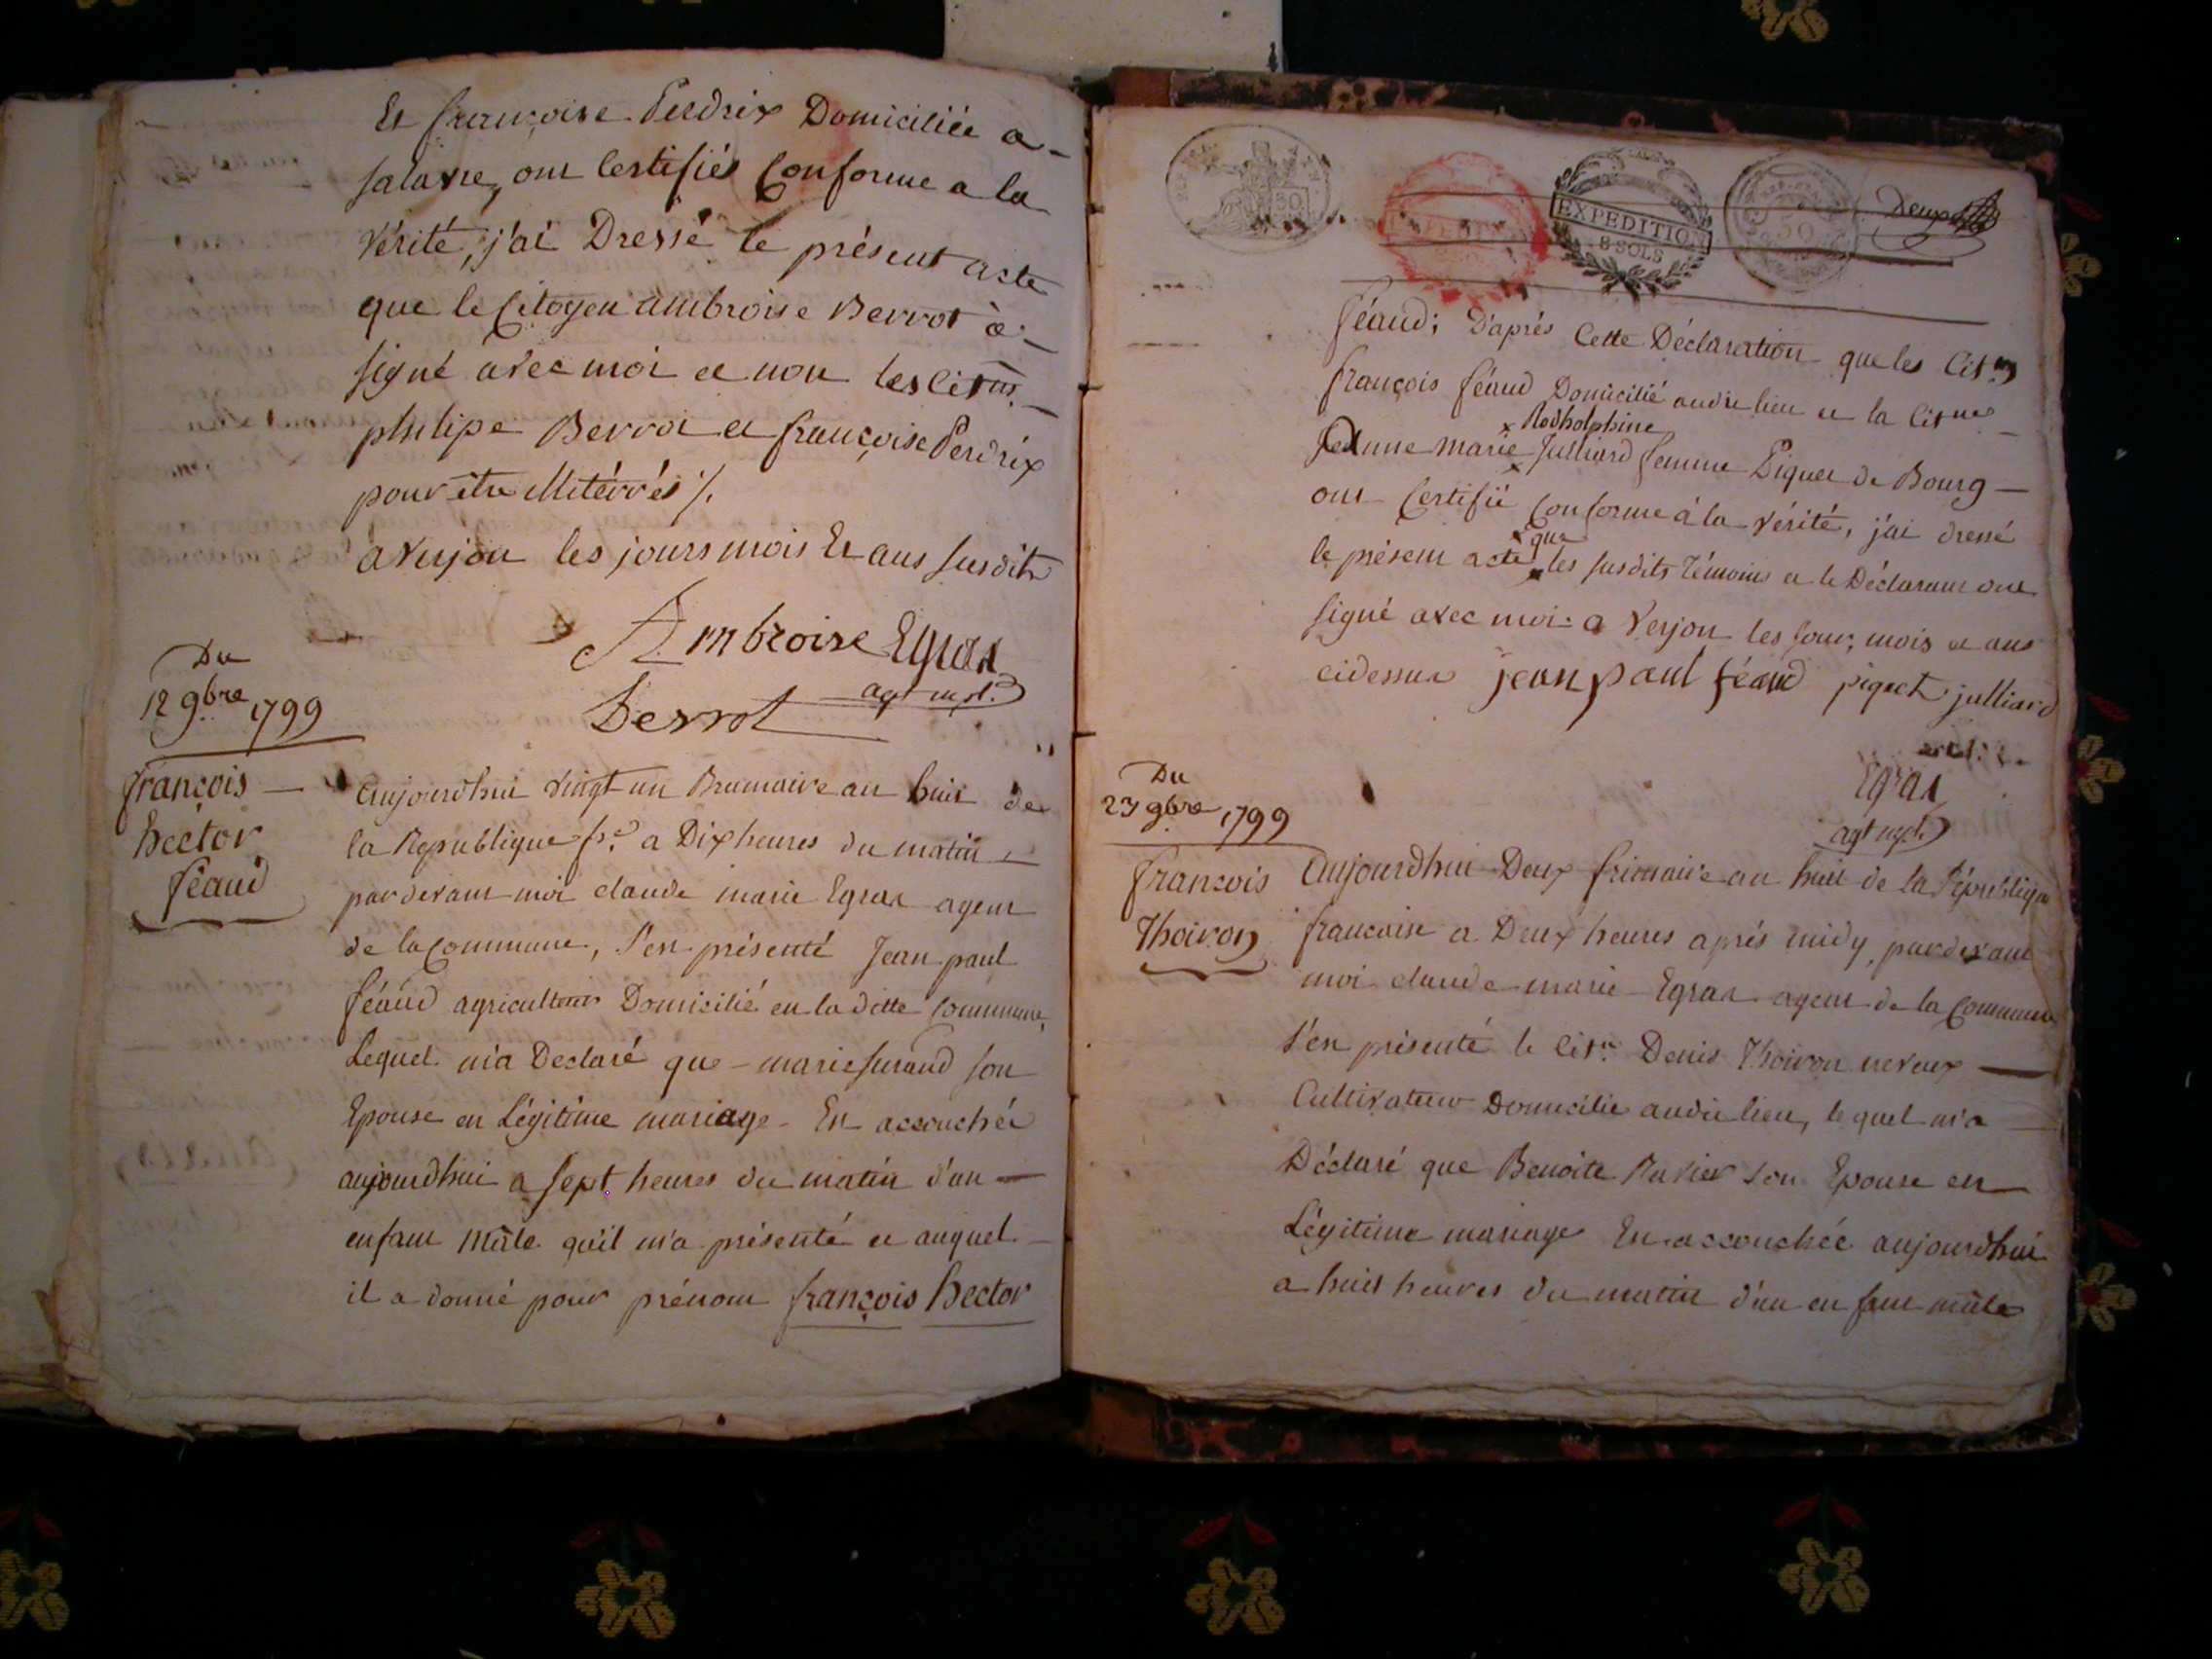 Et françoise Perdrix Domiciliée a
salavre, ont Certifiés Conforme a la
vérité, j'ai Dressé le présent acte
que le Citoyen ambroise Berrot à
signé avec moi et non les Cit.ns
philipe Berrot et françoise Perdrix
pour être illitérrés /.
a verjon les jours mois Et ans susdits
Ambroise Egraz
Berrot
agt mpl.
Du
12 9bre 1799
françois
hector
féaud
aujourdhui vingt un Brumaire an huit de
la Republique f.se a Dix heures du matin
par devant moi claude marie Egraz agent
de la Commune, s'est présenté Jean paul
féaud agriculteur Domicilié en la ditte Commune,
Lequel m'a Declaré que marie surand son
Epouse en Légitime mariage Est accouchée
aujourdhui a sept heures du matin d'un
enfant Mâle qu'il m'a présenté et auquel
il a donné pour prénom françois hector
EXPEDITION
8 SOLS
50
féaud; D'après Cette Déclaration que les Cit.ns
françois féaud Domicilié audit lieu et la Cit.ne
Rodholphine
Jeanne marie Julliard femme Piquet de Bourg
ont Certifié Conforme à la vérité, j'ai dressé
que
le présent acte les susdits Témoins et le Déclarant ont
signé avec moi a verjon les jour, mois et ans
cidessus jean paul féaud piquet julliard
Egraz
agt mpl.
Du
23 9bre 1799
françois
Thoiron
aujourdhui Deux frimaire an huit de la République
francaise a Deux heures après midy, par devant
moi claude marie Egraz agent de la Commune
s'est présenté le Cit.n Denis Thoiron neveux
Cultivateur Domicilié audit lieu, le quel m'a
Déclaré que Benoite Ravier son Epouse en
Légitime mariage Est accouchée aujourdhui
a huit heures du matin d'un enfant mâle